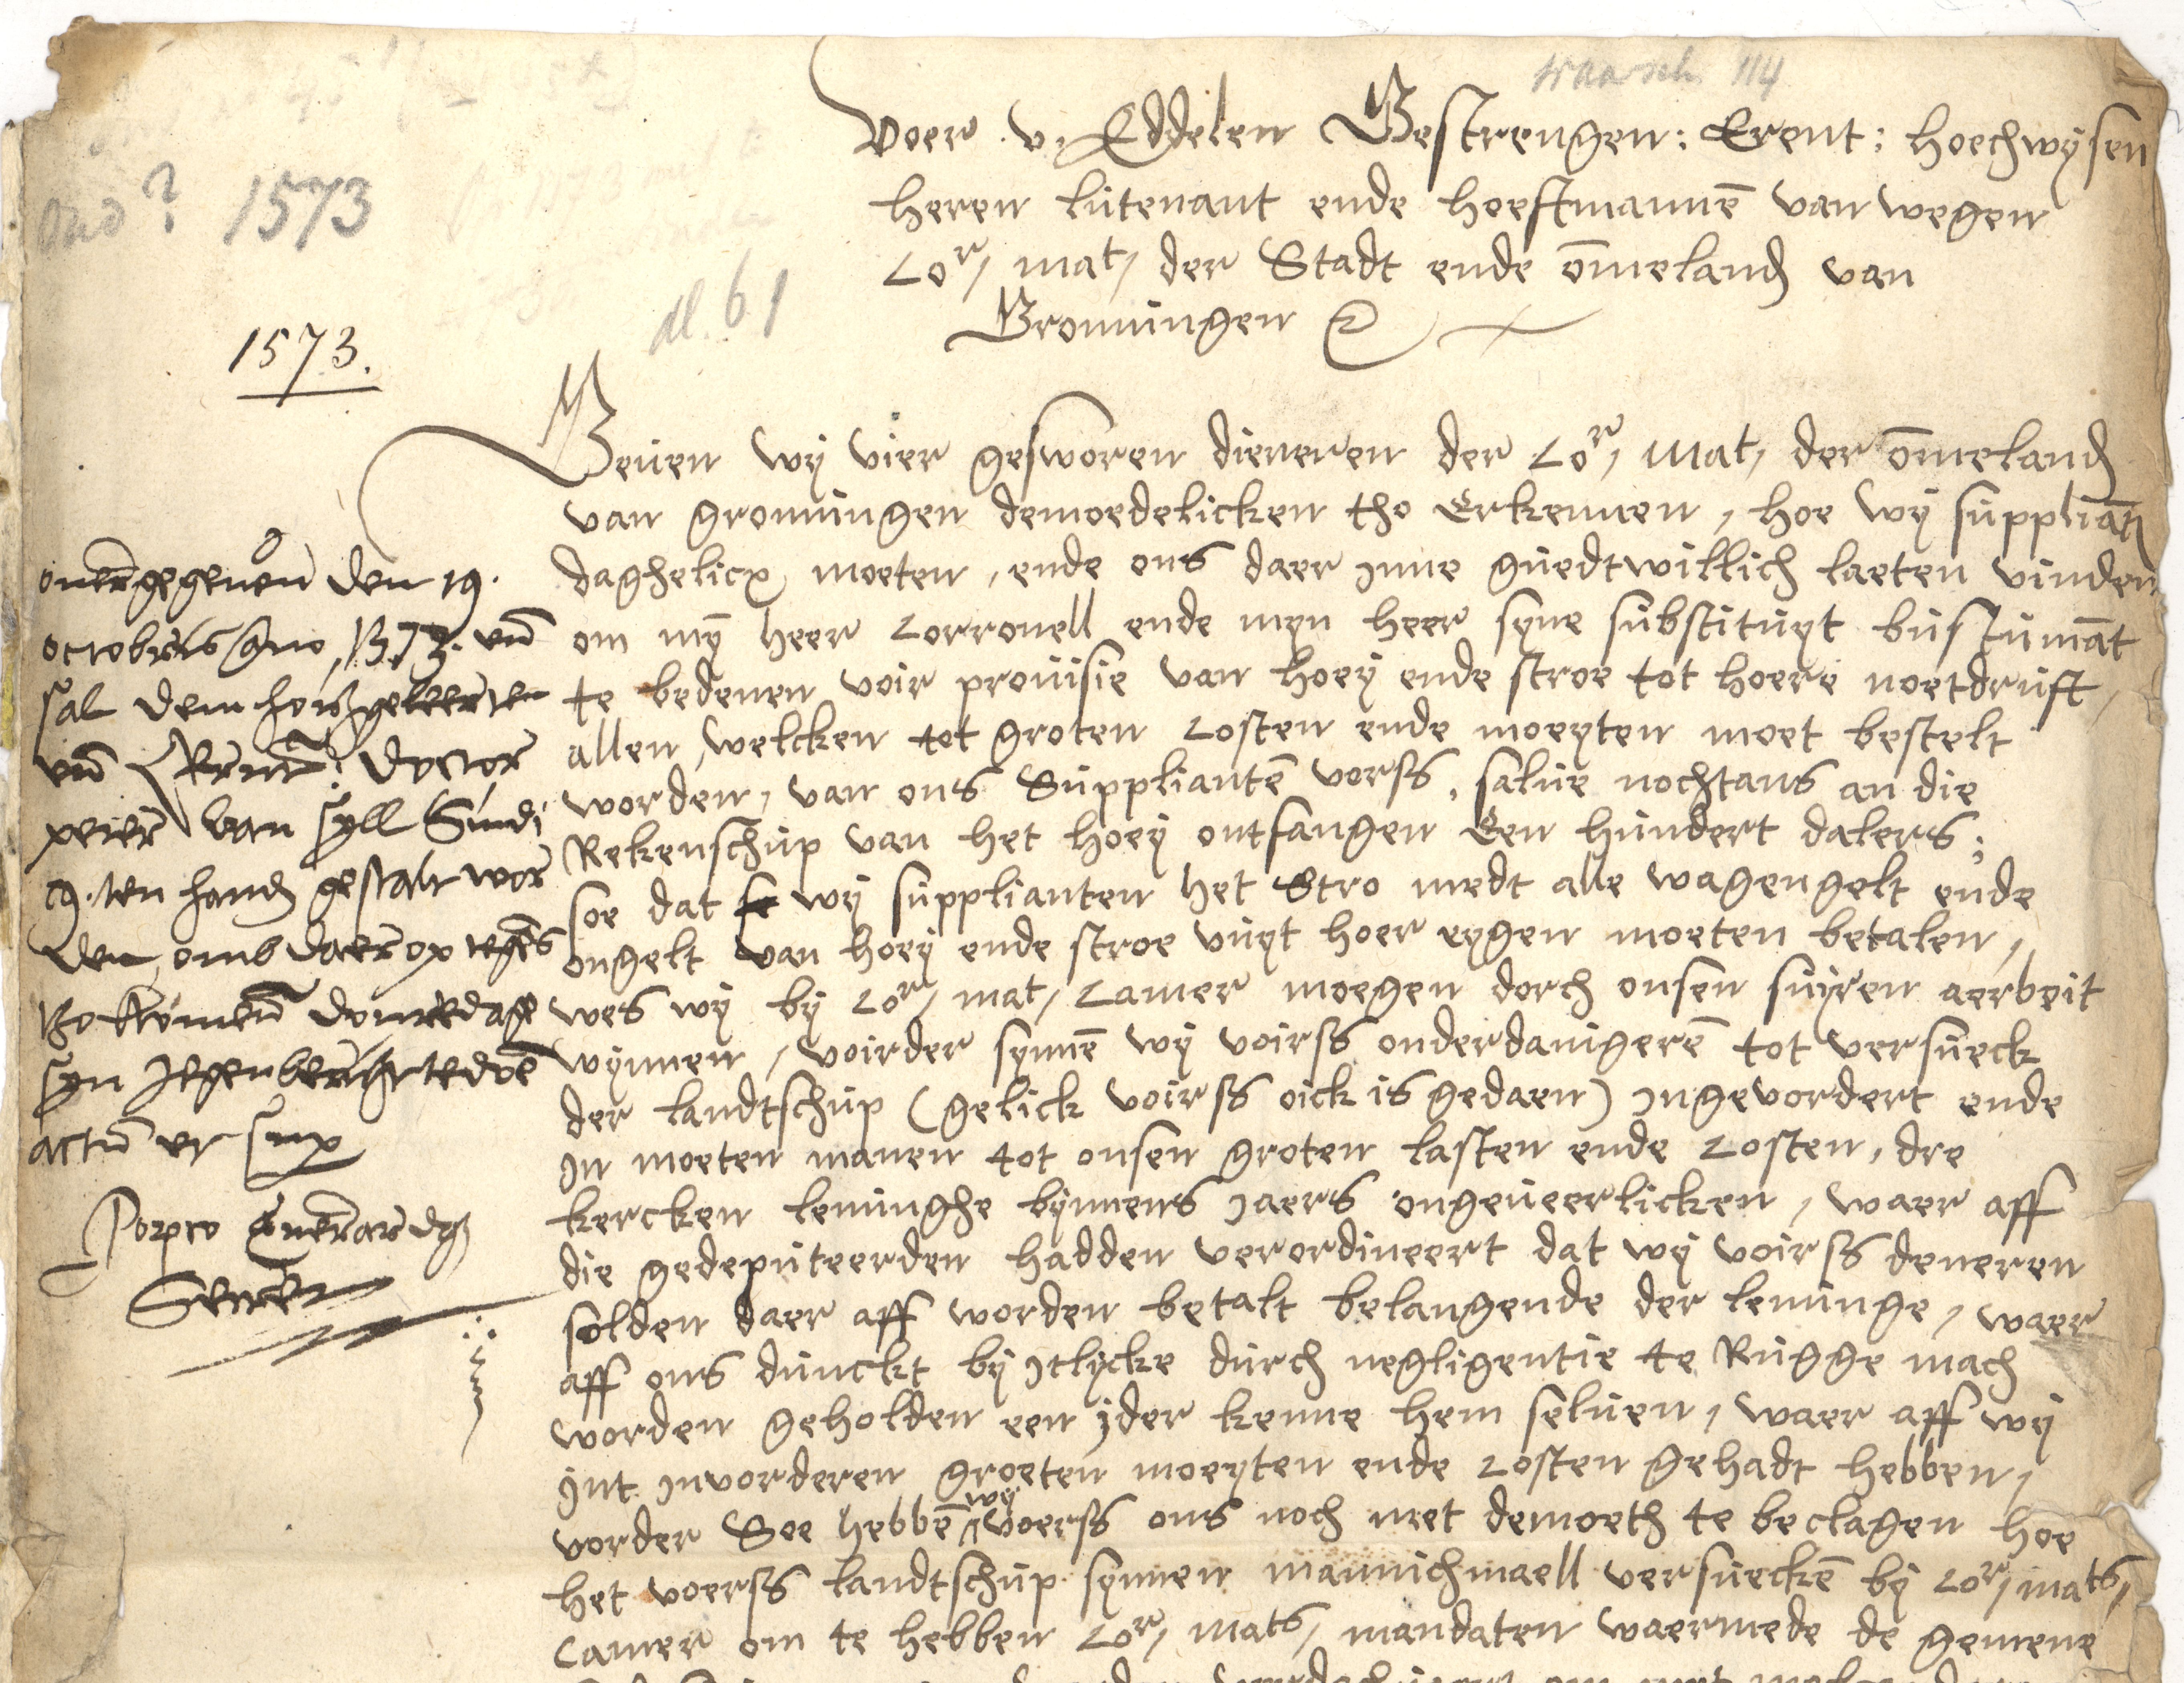 waarsch. 114
Voer v. Eddelen Gestrengen: Erent: hoechwysen
heren lutenant ende hoeftmannē van wegen
Cor, mat, der Stadt ende ōmeland van
Gronningen
Ond? 1573
dl. 61
1573.
Geuen wij vier gesworen dieneren der Cor, Mat, der ōmeland
van gronningen demoedelicken tho Erkennen, hoe wij suppliāt
daghelicx moeten, ende ons daer jnne guedtwillich laeten vinden,
om mȳ heer Corronell ende myn heer syne substituyt
te bedenen voir prouisie van hoey ende stroe tot hoere noetdruft,
allen, welcken tot groten Costen ende moeyten moet bestelt
worden, van ons Suppliantē vorss, salue nochtans an die
Rekenschup van het hoey ontfangen Een hundert dalers;
soe dat wij supplianten het Stro medt alle wagengelt ende
ongelt van hoey ende stroe vuyt hoer eygen moeten betalen,
wes wij by Cor, mat, Camer moegen dorch onsen suyren aerbeit
wynnen, voirder synnē wij voirss onderdanigerē tot versueck
der landtschup (gelick voirss oick is gedaen) jngevordert ende
jn moeten manen tot onsen groten lasten ende Costen, dre
kercken leninghe bynnens jaers ongeueerlicken, waer aff
die gedeputeerden hadden verordineert dat wij voirss deneren
solden daer aff worden betalt belangende der leninge, waer
aff ons dunckt bij jtlycke durch negligentie te Rugge mach
worden geholden een jder kenne hem seluen, waer aff wij
jnt jnvorderen groeten moeyten ende Costen gehadt hebben,
vorder Soe hebbē wij voerss ons noch met demoeth te beclagen hoe
het voerss landtschup synnen mannichmaell versueckē by Cor, mats,
Camer om te hebben Cor, mats, mandaten waermede de gemene
ouergegeuen den 19.
octobris Anno 1573. vnd
sal dem hochgeleerten
vnd Erent: Doctor
peter van syll Sindi
9. ten hand gestalt wor
den, omb daerop tegens
tho komen donredage
syn jegenbericht te doē
actū vt sup